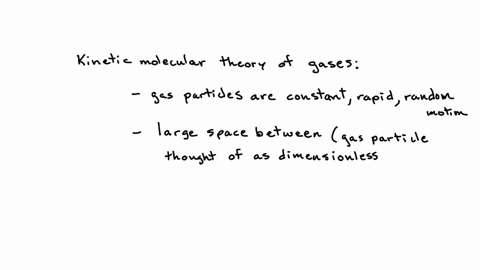 Kinetic molecular theory of gases:
- gas particles are constant, rapid, random
motion
- large space between (gas particle
thought of as dimensionless